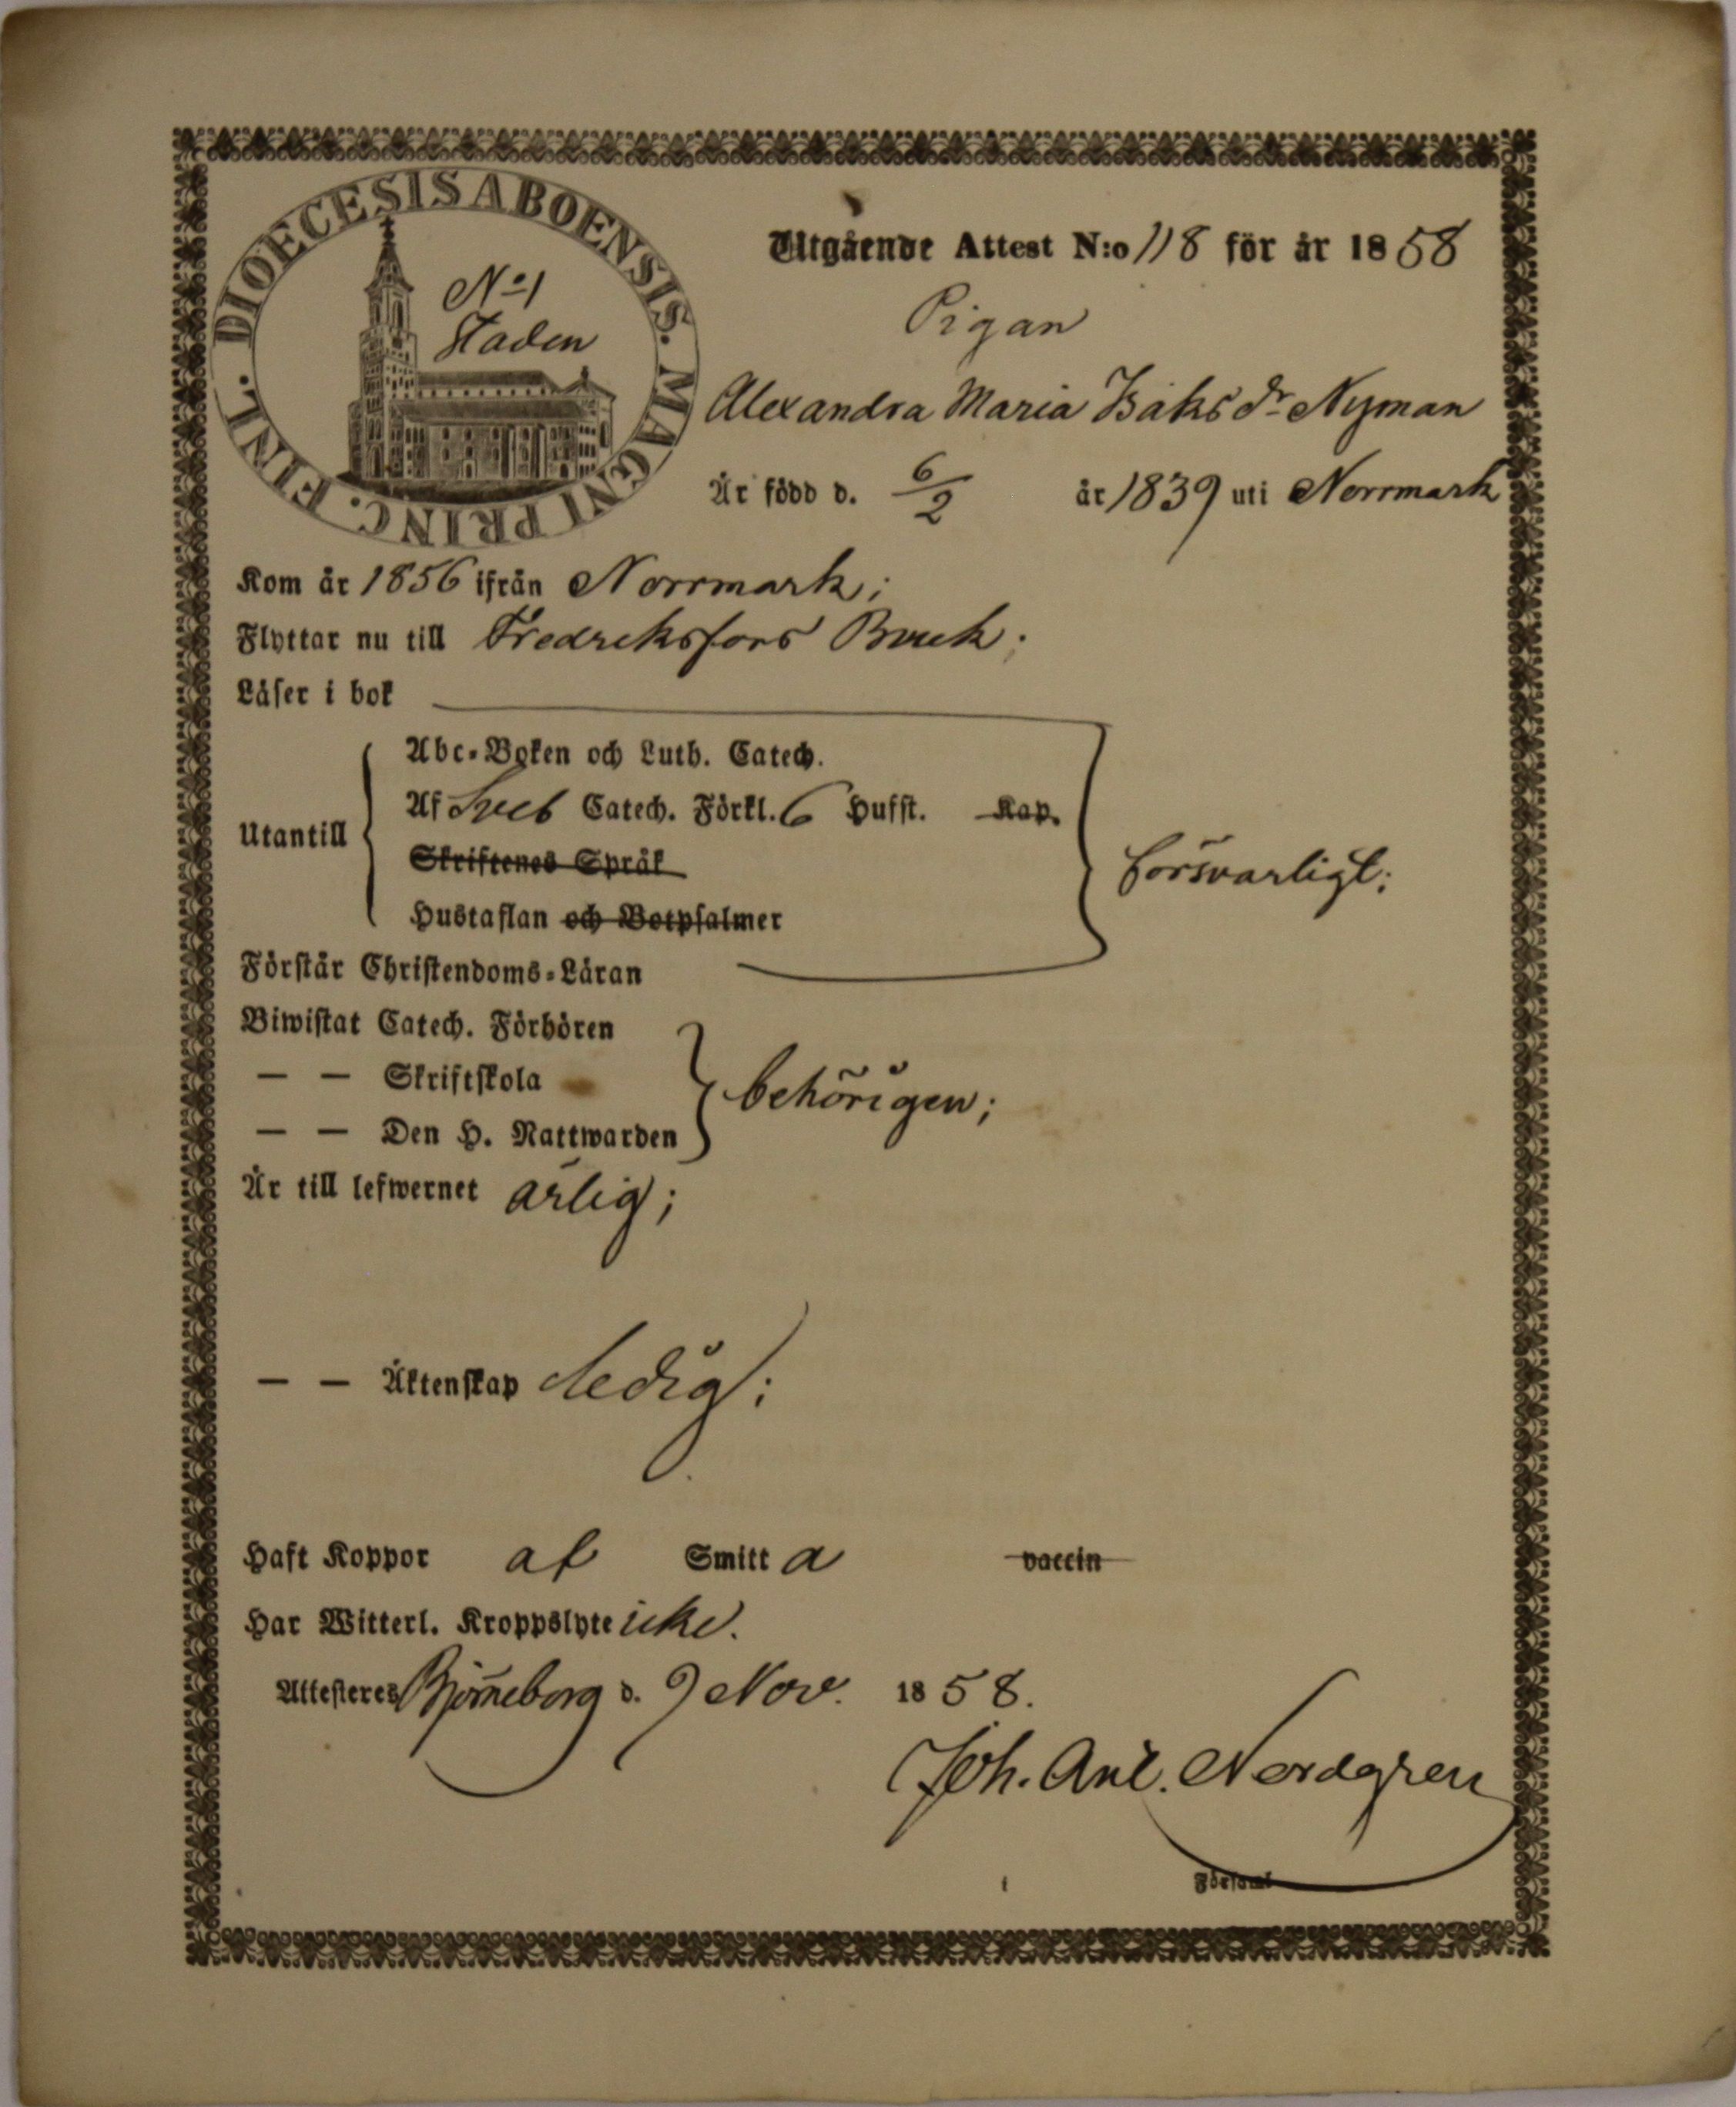 DIOECESIS ABOENSIS. MAGNI PRINC. FINL.
No 1
Staden
Utgående Attest N:o 118 för år 1858
Pigan
Alexandra Maria Isaksdr Nyman
Är född d. 6/2 år 1839 uti Norrmark
Kom år 1856 ifrån Norrmark;
Flyttar nu till Fredriksfors Bruk.
Läser i bok
Abc-Boken och Luth. Catech.
Af Sveb Catech. Förkl. 6 Hufst. Kap.
Utantill
Skriftenes Språk
försvarligt;
Hustaflan och Botpsalmer
Förstår Christendoms-Läran
Biwistat Catech. Förhören
— — Skriftskola
behörigen;
— — Den H. Nattwarden
Är till lefwernet ärlig;
— — Äktenskap ledig;
Haft Koppor af Smitta vaccin
Har Witterl. Kroppslyte icke.
Attesteres Björneborg d. 9 Nov. 1858.
Joh. Nordgren
i Församl